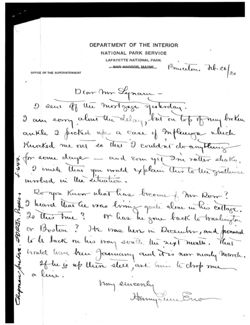 DEPARTMENT OF THE INTERIOR
NATIONAL PARK SERVICE
LAFAYETTE NATIONAL PARK
BAR HARBOR, MAINE
OFFICE OF THE SUPERINTENDENT
Princeton, Feb. 26/20
Dear Mr. Lynam:—
I sent off the mortgage yesterday.
I am sorry about the delay, but on top of my broken
ankle I picked up a case of Influenza which
knocked me out so that I couldn't do anything
for some days — and I'm rather shaky.
I wish that you would explain this to the gentleman
involved in the situation.
Do you know what has become of Mr. Dorr?
I heard that he was living quite alone in his cottage.
Is this true? Or has he gone back to Washington
or Boston? He was here in December, and promised
to be back on his way south the next month. That
would have been January and it is now nearly March.
If he is up there still, just to drop me
a line.
Very sincerely